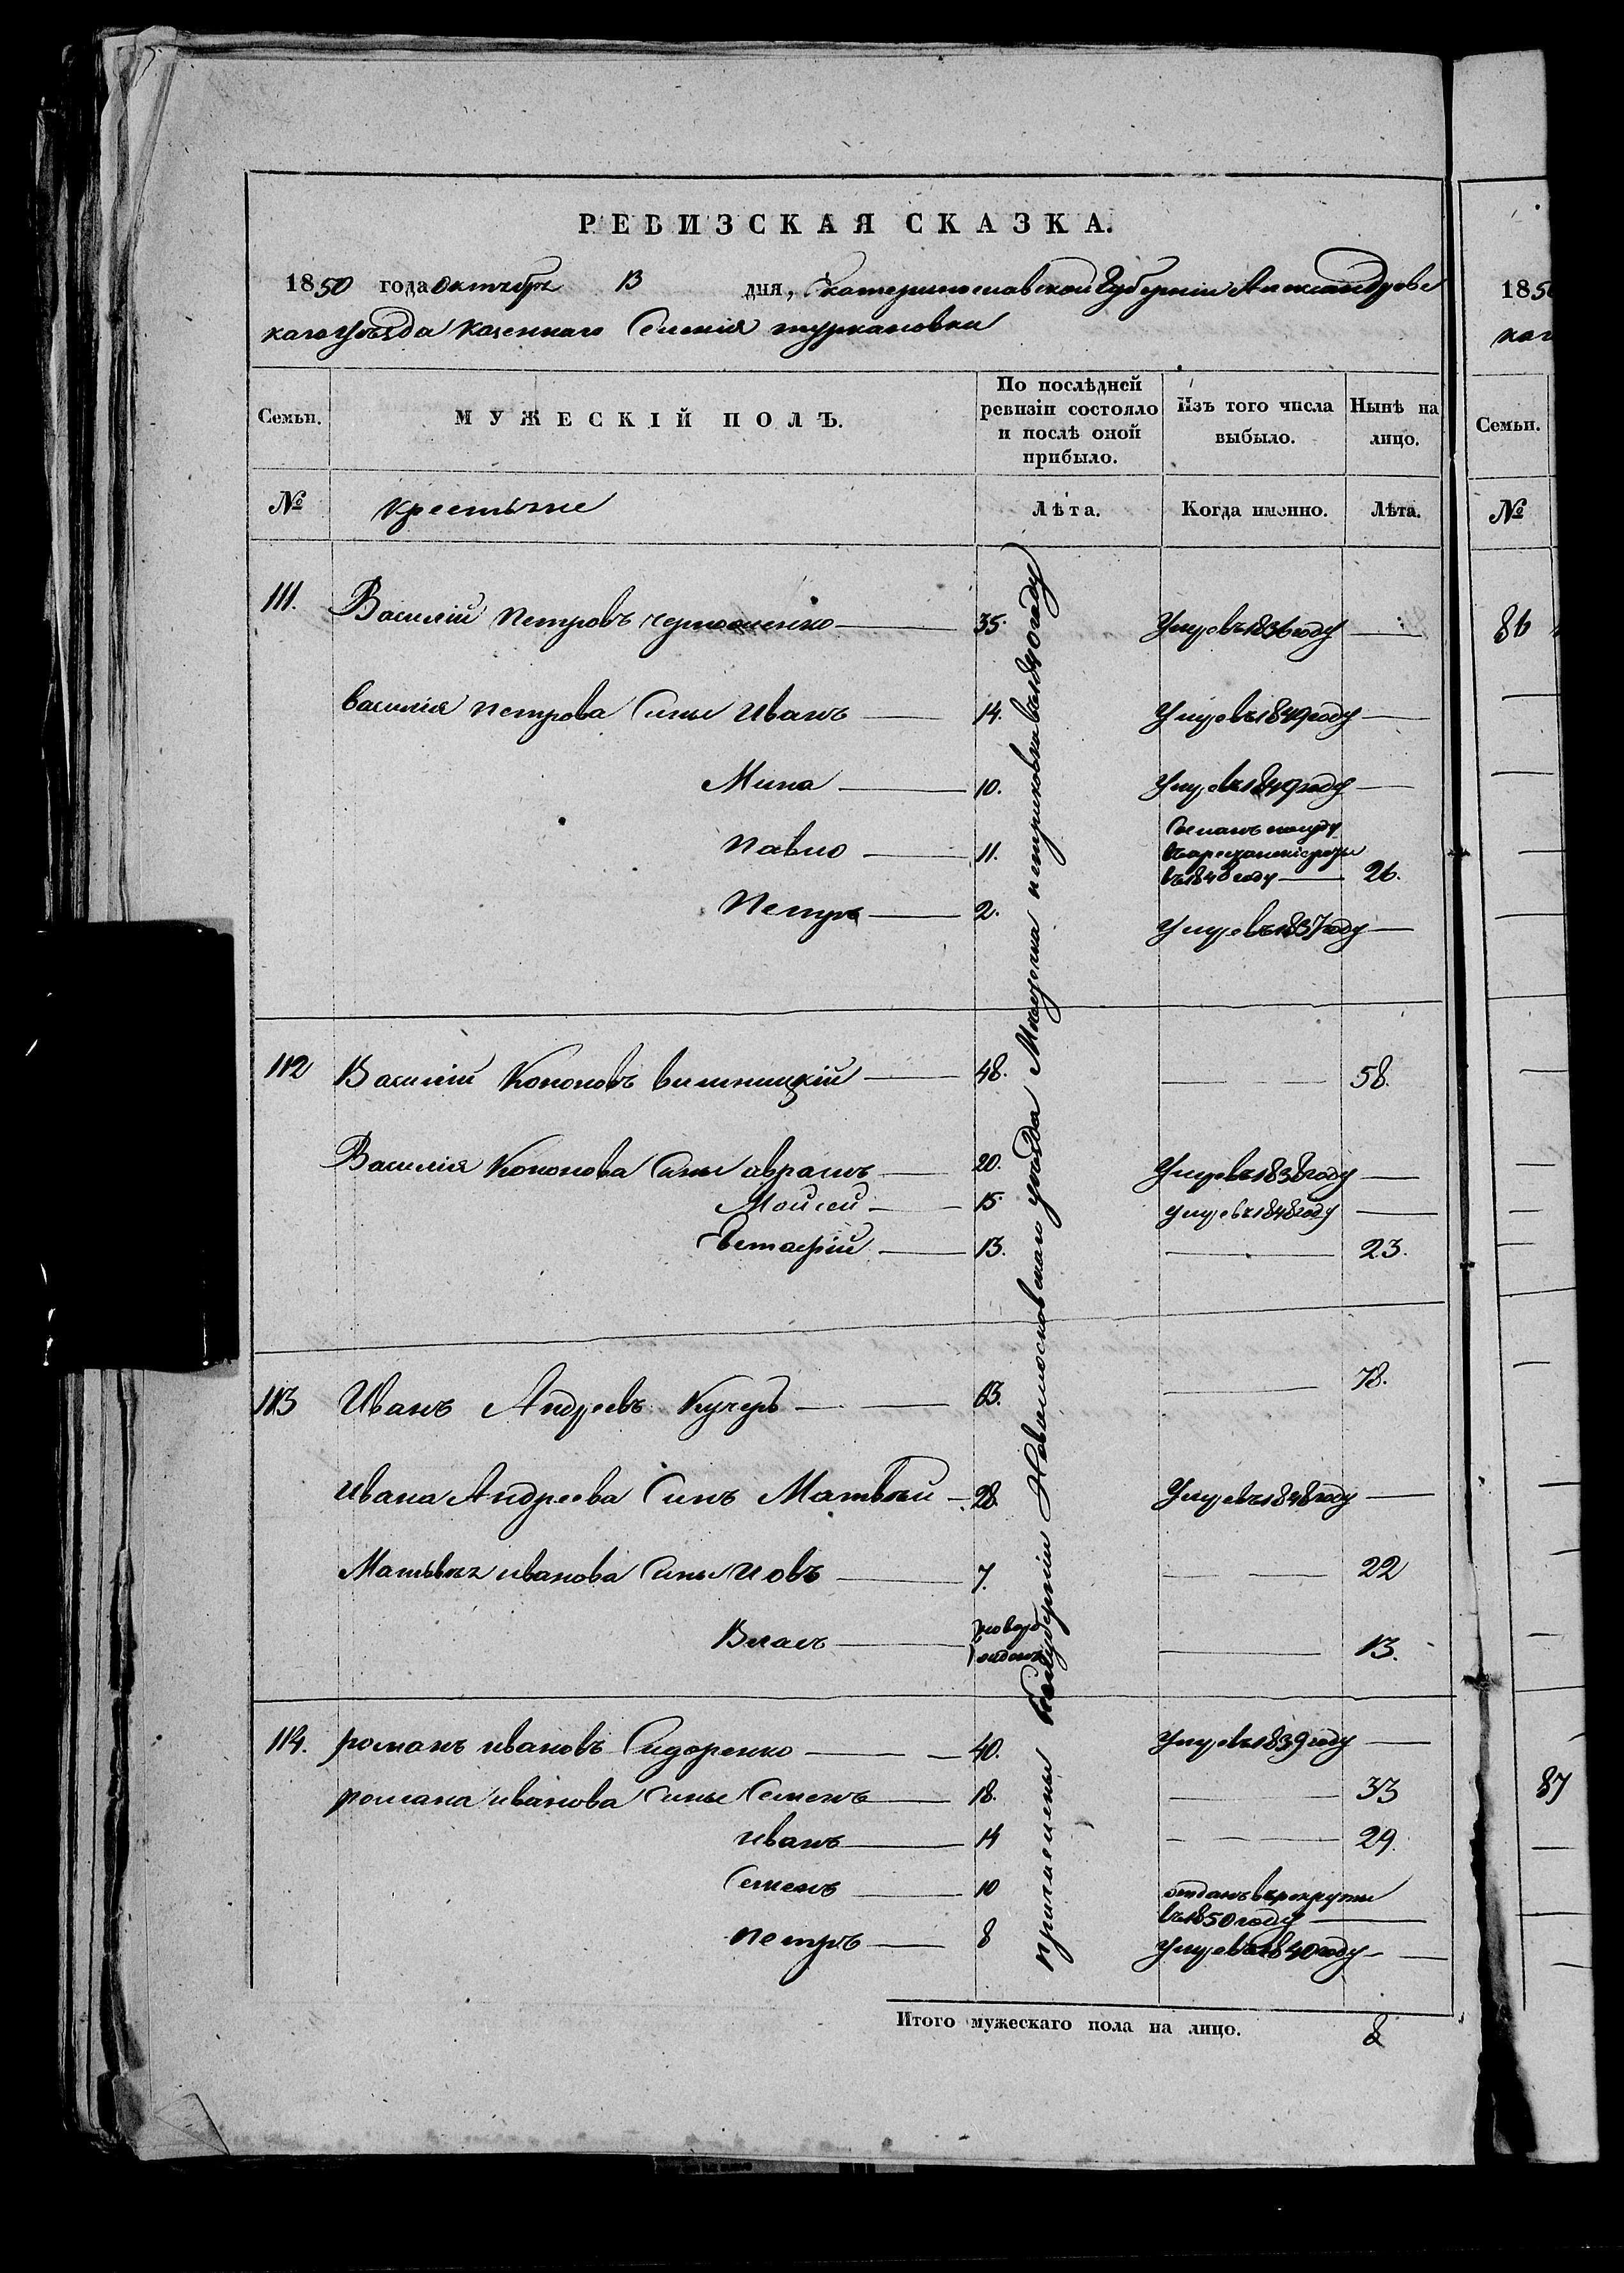 РЕВИЗСКАЯ СКАЗКА.
1850 года октября 13 дня, Екатеринославской Губернии Александровс
каго уѣзда казеннаго Селенія туркановки
Семьи.
МУЖЕСКІЙ ПОЛЪ.
По послѣдней ревизіи состояло и послѣ оной прибыло.
Изъ того числа выбыло.
Нынѣ на лицо.
№ крестьяне Лѣта. Когда именно. Лѣта.
111. Василій Петровъ 35. Умре въ 1836 году
Василія Петрова Сыны Иванъ 14. Умре въ 1849 году
Мина 10. Умре въ 1849 году
Павло 11. въ 1848 году 26.
Петръ 2. Умре въ 1837 году
112 Василій Кононовъ вишницкій 48. 58.
Василія Кононова Сыны аврамъ 20. Умре въ 1838 году
Моисей 15. умре въ 1848 году
Евтафій 13. 23.
113 Иванъ Андреевъ Кучеръ 63. 78.
Ивана Андреева Сынъ Матвѣй 28. Умре въ 1848 году
Матвѣя иванова Сыны Иовъ 7. 22
Власъ 13.
114. романъ ивановъ Сидоренко 40. Умре въ 1839 году
романа иванова Сыны Семенъ 18. 33
иванъ 14 29.
Семенъ 10 отданъ в рекруты
въ 1850 году
Петръ 8 Умре въ 1840 году
причислены губерніи Новомосковскаго уѣзда петриковка году
Итого мужескаго пола на лицо. 8
185
каг
Семьи.
№
86
87